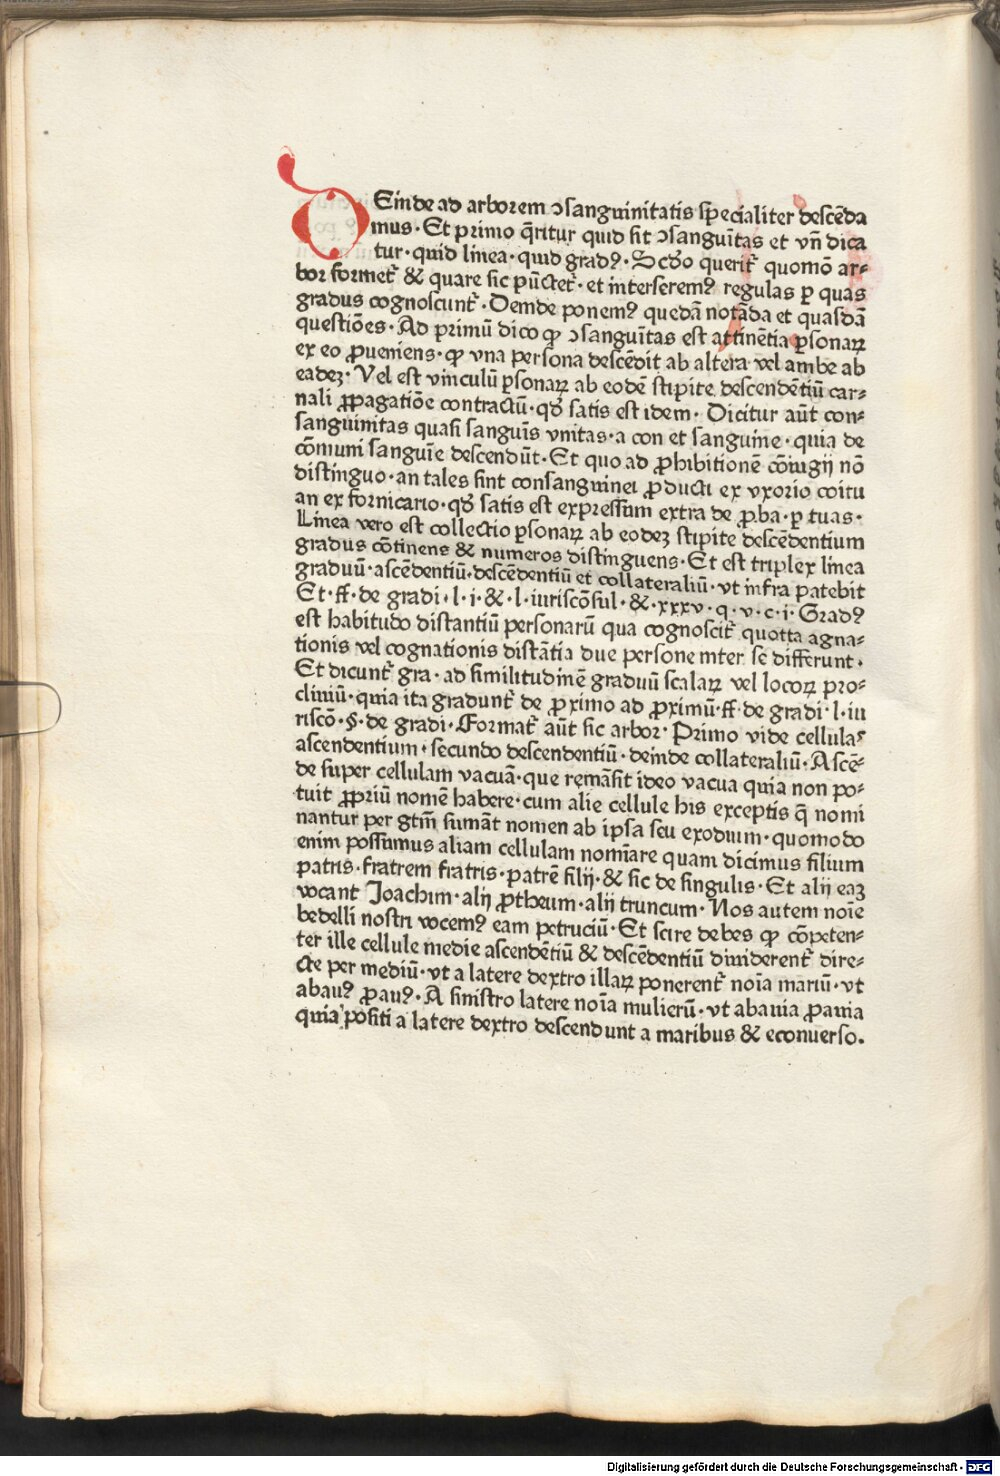 DEinde ad arborem ↄsanguinitatis specialiter descēda
mus · Et primo q̄ritur quid sit ↄsanguītas et vn̄ dica
tur · quid linea · quid gradꝰ · Scd̄o querit᷑ quomō ar⸗
bor formet᷑ & quare sic pūctet᷑ · et interseremꝰ regulas ꝑ quas
gradus cognoscunt᷑ · Deinde ponemꝰ quedā notāda et quasdā
questiōes · Ad primū dico ꝙ ↄsanguītas est attinētia ꝑsonaꝝ
ex eo ꝓueniens · ꝙ vna persona descēdit ab altera vel ambe ab
eadeʒ · Vel est vinculū ꝑsonaꝝ ab eodē stipite descendētiū car⸗
nali ꝓpagatiōe contractū · qd̄ satis est idem · Dicitur aūt con⸗
sanguinitas quasi sanguīs vnitas · a con et sanguine · quia de
cōmuni sanguīe descendūt · Et quo ad ꝓhibitionē cōiugij nō
distinguo · an tales sint consanguinei ꝓducti ex vxorio coitu
an ex fornicario · qd̄ satis est expressum extra de ꝓba · ꝑ tuas ·
Linea vero est collectio ꝑsonaꝝ ab eodeʒ stipite descēdentium
gradus cōtinens & numeros distinguens · Et est triplex linea
graduū · ascēdentiū · descēdentiū et collateraliū · vt infra patebit
Et · ff · de gradi · l · i · & · l · iuriscōsul · & · xxxv · q · v · c · i · Gradꝰ
est habitudo distantiū personarū qua cognoscit᷑ quotta agna⸗
tionis vel cognationis distātia due persone inter se differunt ·
Et dicunt᷑ gra · ad similitudinē graduū scalaꝝ vel locoꝝ pro⸗
cliuiū · quia ita gradunt᷑ de ꝓximo ad ꝓximū · ff · de gradi · l · iu
riscō · § · de gradi · Format᷑ aūt sic arbor · Primo vide cellulas
ascendentium · secundo descendentiū · deinde collateraliū · Ascē⸗
de super cellulam vacuā · que remāsit ideo vacua quia non po⸗
tuit ꝓpriū nomē habere · cum alie cellule his exceptis q̄ nomi
nantur per gtm̄ sumāt nomen ab ipsa seu exodium · quomodo
enim possumus aliam cellulam nomīare quam dicimus filium
patris · fratrem fratris · patrē filij · & sic de singulis · Et alij eaʒ
vocant Joachim · alij ꝓtheum · alij truncum · Nos autem noīe
bedelli nostri vocemꝰ eam petruciū · Et scire debes ꝙ cōpeten⸗
ter ille cellule medie ascendētiū & descēdentiū diuiderent᷑ dire⸗
cte per mediū · vt a latere dextro illaꝝ ponerent᷑ noīa mariū · vt
abauꝰ ꝓauꝰ · A sinistro latere noīa mulierū · vt abauia ꝓauia
quia positi a latere dextro descendunt a maribus & econuerso .
Digitalisierung gefördert durch die Deutsche Forschungsgemeinschaft - DFG